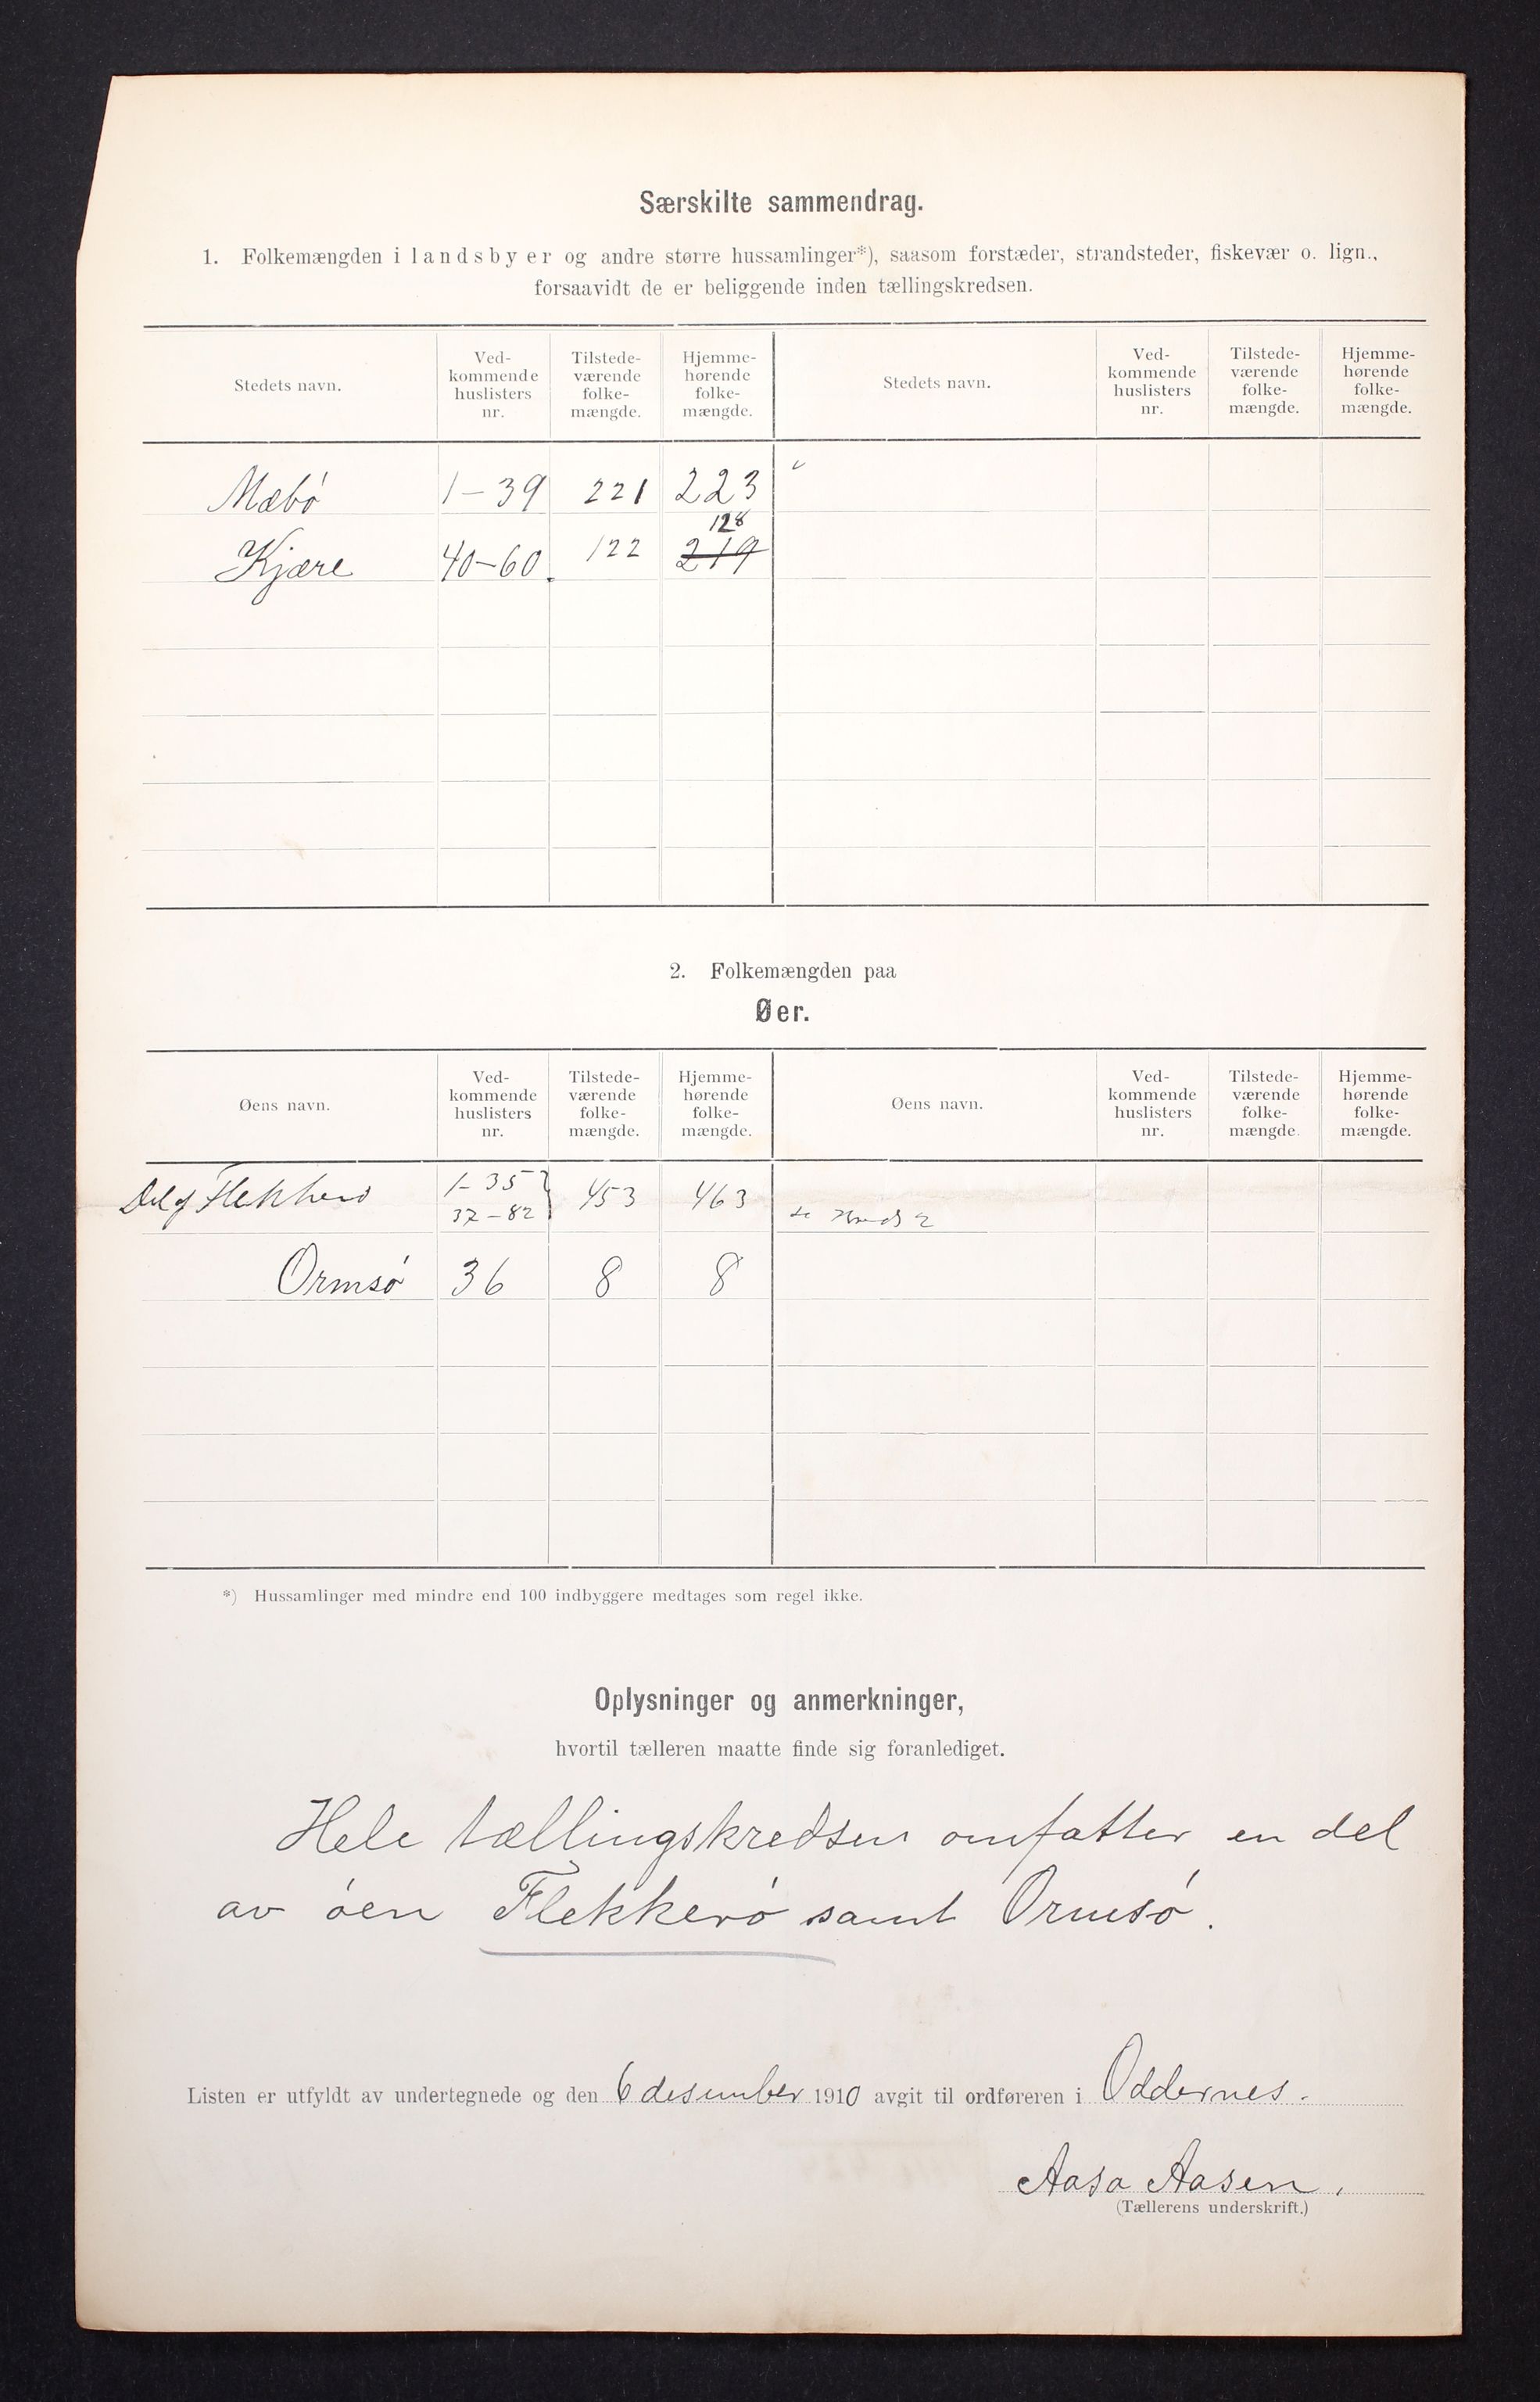 Særskilte sammendrag.
1. Folkemængden i landsbyer og andre større hussamlinger*), saasom forstæder, strandsteder, fiskevær o. lign.,
forsaavidt de er beliggende inden tællingskredsen.
Stedets navn. Ved-kommende huslisters nr. Tilstede-værende folke-mængde. Hjemme-hørende folke-mængde. Stedets navn. Ved-kommende huslisters nr. Tilstede-værende folke-mængde. Hjemme-hørende folke-mængde.
Mæbø 1-39 221 223
128
Kjære 40-60. 122 219
2. Folkemængden paa
Øer.
Øens navn. Ved-kommende huslisters nr. Tilstede-værende folke-mængde. Hjemme-hørende folke-mængde. Øens navn. Ved-kommende huslisters nr. Tilstede-værende folke-mængde. Hjemme-hørende folke-mængde.
Del af Flekkerø 1-35 453 463
37-82
Ormsø 36 8 8
*) Hussamlinger med mindre end 100 indbyggere medtages som regel ikke.
Oplysninger og anmerkninger,
hvortil tælleren maatte finde sig foranlediget.
Hele tællingskredsen omfatter en del
av øen Flekkerø samt Ormsø.
Listen er utfyldt av undertegnede og den 6 desember 1910 avgit til ordføreren i Oddernes.
Aasa Aasen.
(Tællerens underskrift.)